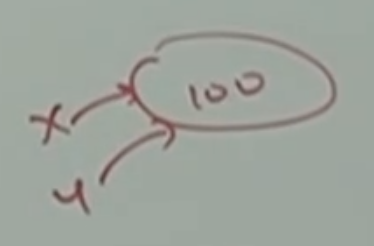 100
x
y